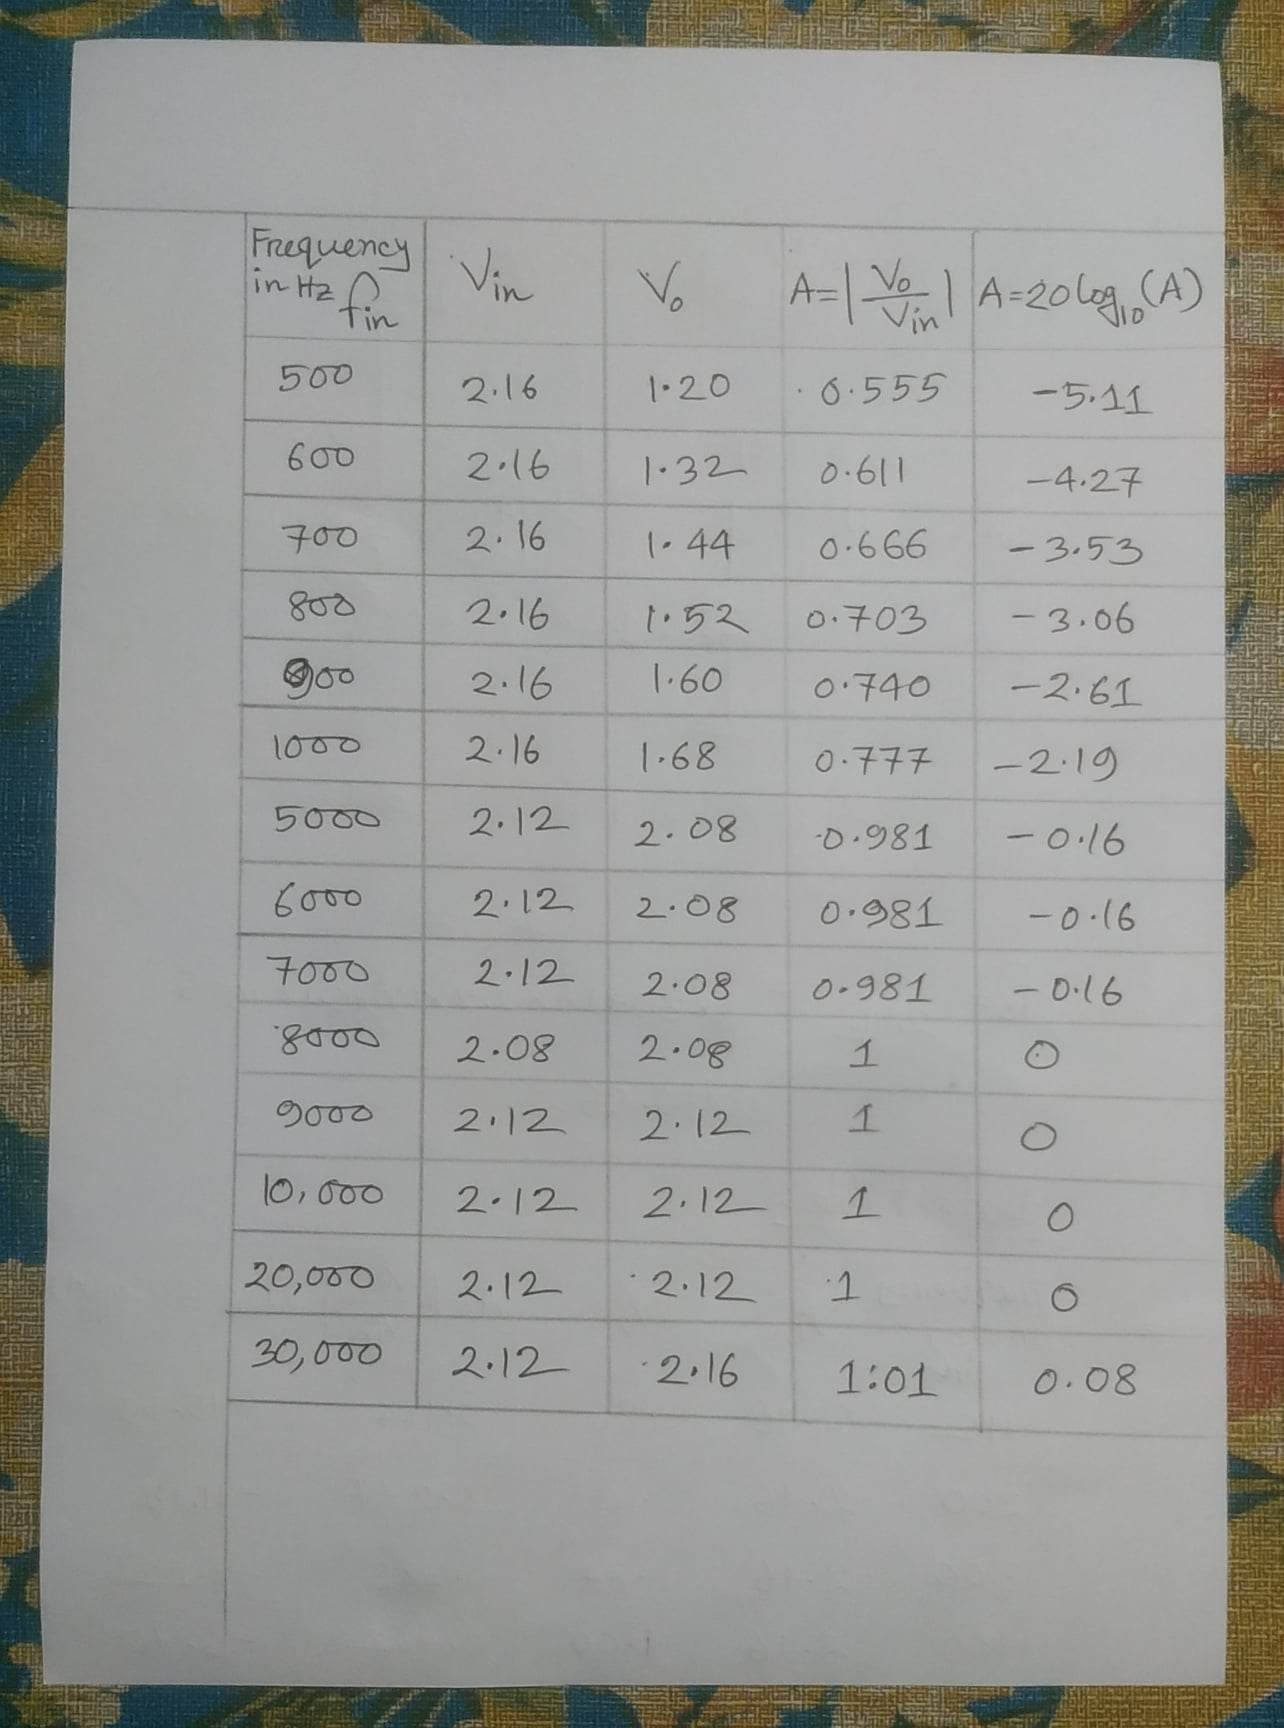 Frequency in Hz fin | Vin | Vo | A=|Vo/Vin| | A=20log10(A)
500 | 2.16 | 1.20 | 0.555 | -5.11
600 | 2.16 | 1.32 | 0.611 | -4.27
700 | 2.16 | 1.44 | 0.666 | -3.53
800 | 2.16 | 1.52 | 0.703 | -3.06
900 | 2.16 | 1.60 | 0.740 | -2.61
1000 | 2.16 | 1.68 | 0.777 | -2.19
5000 | 2.12 | 2.08 | 0.981 | -0.16
6000 | 2.12 | 2.08 | 0.981 | -0.16
7000 | 2.12 | 2.08 | 0.981 | -0.16
8000 | 2.08 | 2.08 | 1 | 0
9000 | 2.12 | 2.12 | 1 | 0
10,000 | 2.12 | 2.12 | 1 | 0
20,000 | 2.12 | 2.12 | 1 | 0
30,000 | 2.12 | 2.16 | 1:01 | 0.08